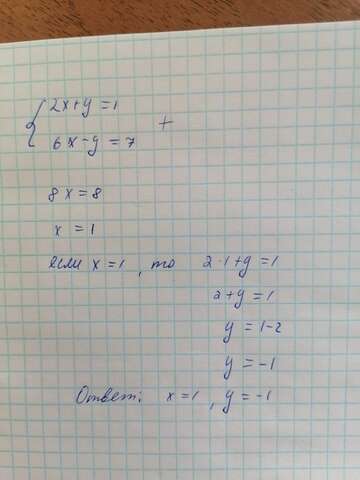 2x+y=1
+
6x-y=7
8x=8
x=1
если x=1, то 2·1+y=1
2+y=1
y=1-2
y=-1
Ответ: x=1, y=-1